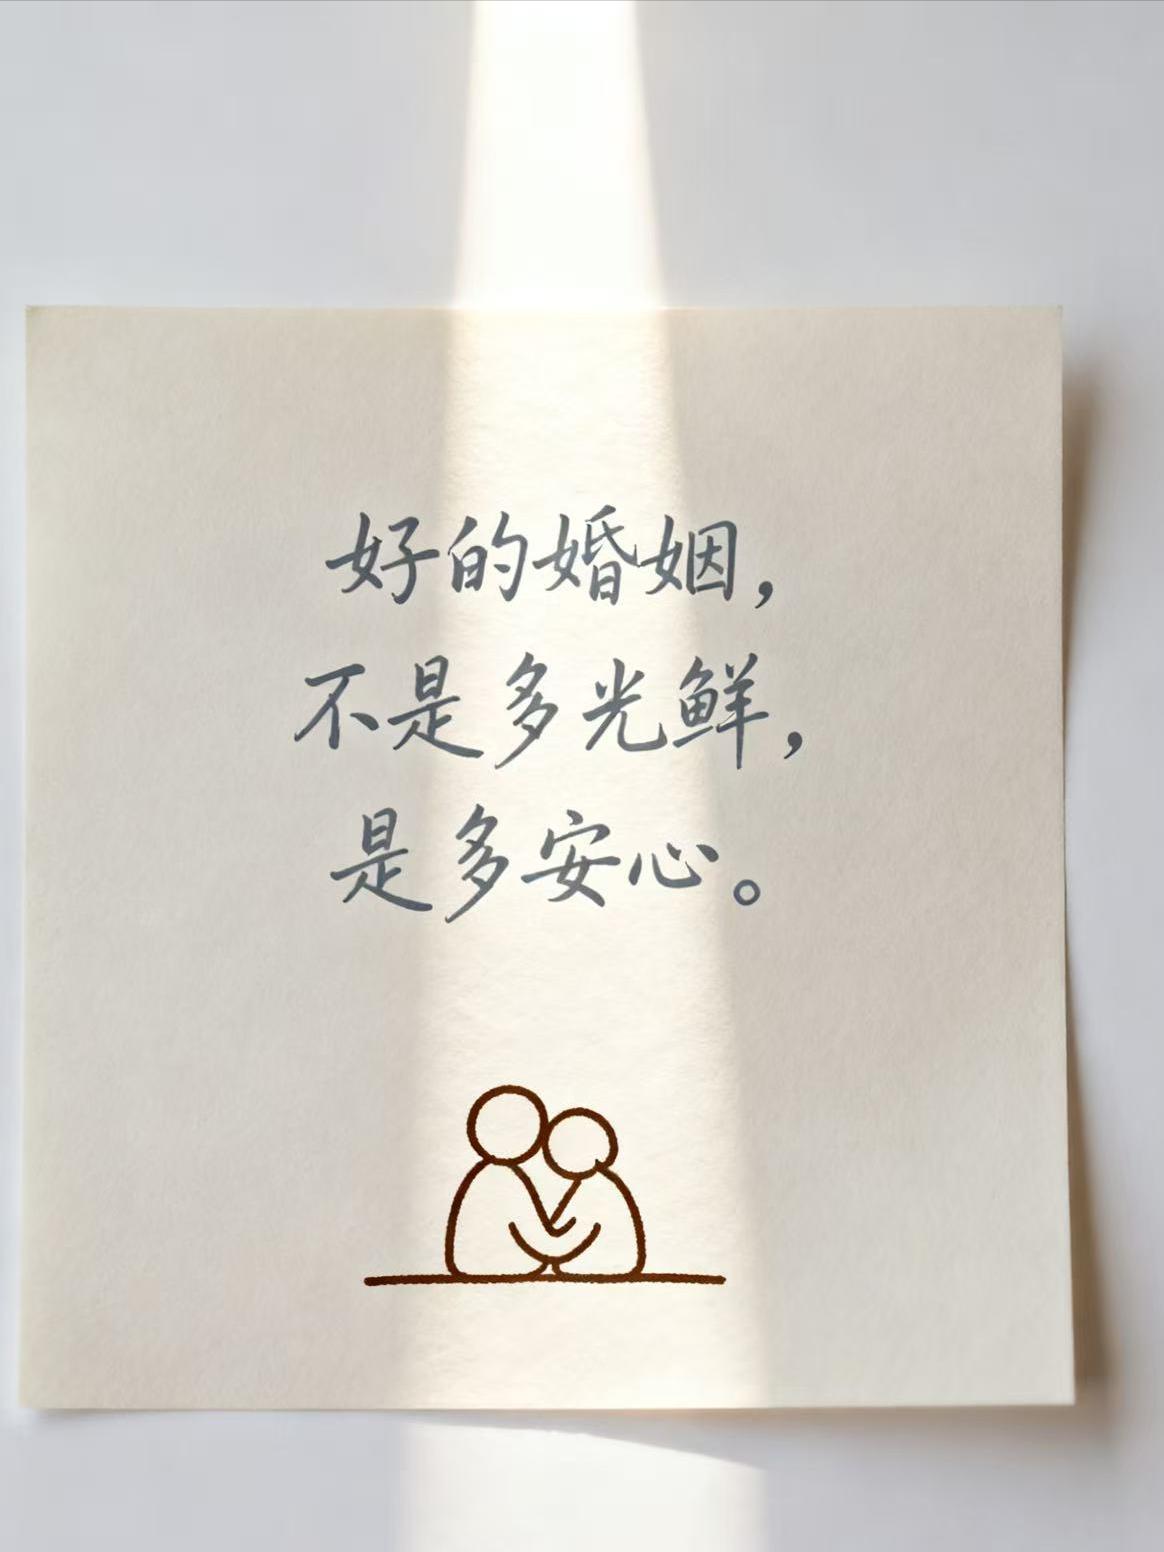 好的婚姻，
不是多光鲜，
是多安心。